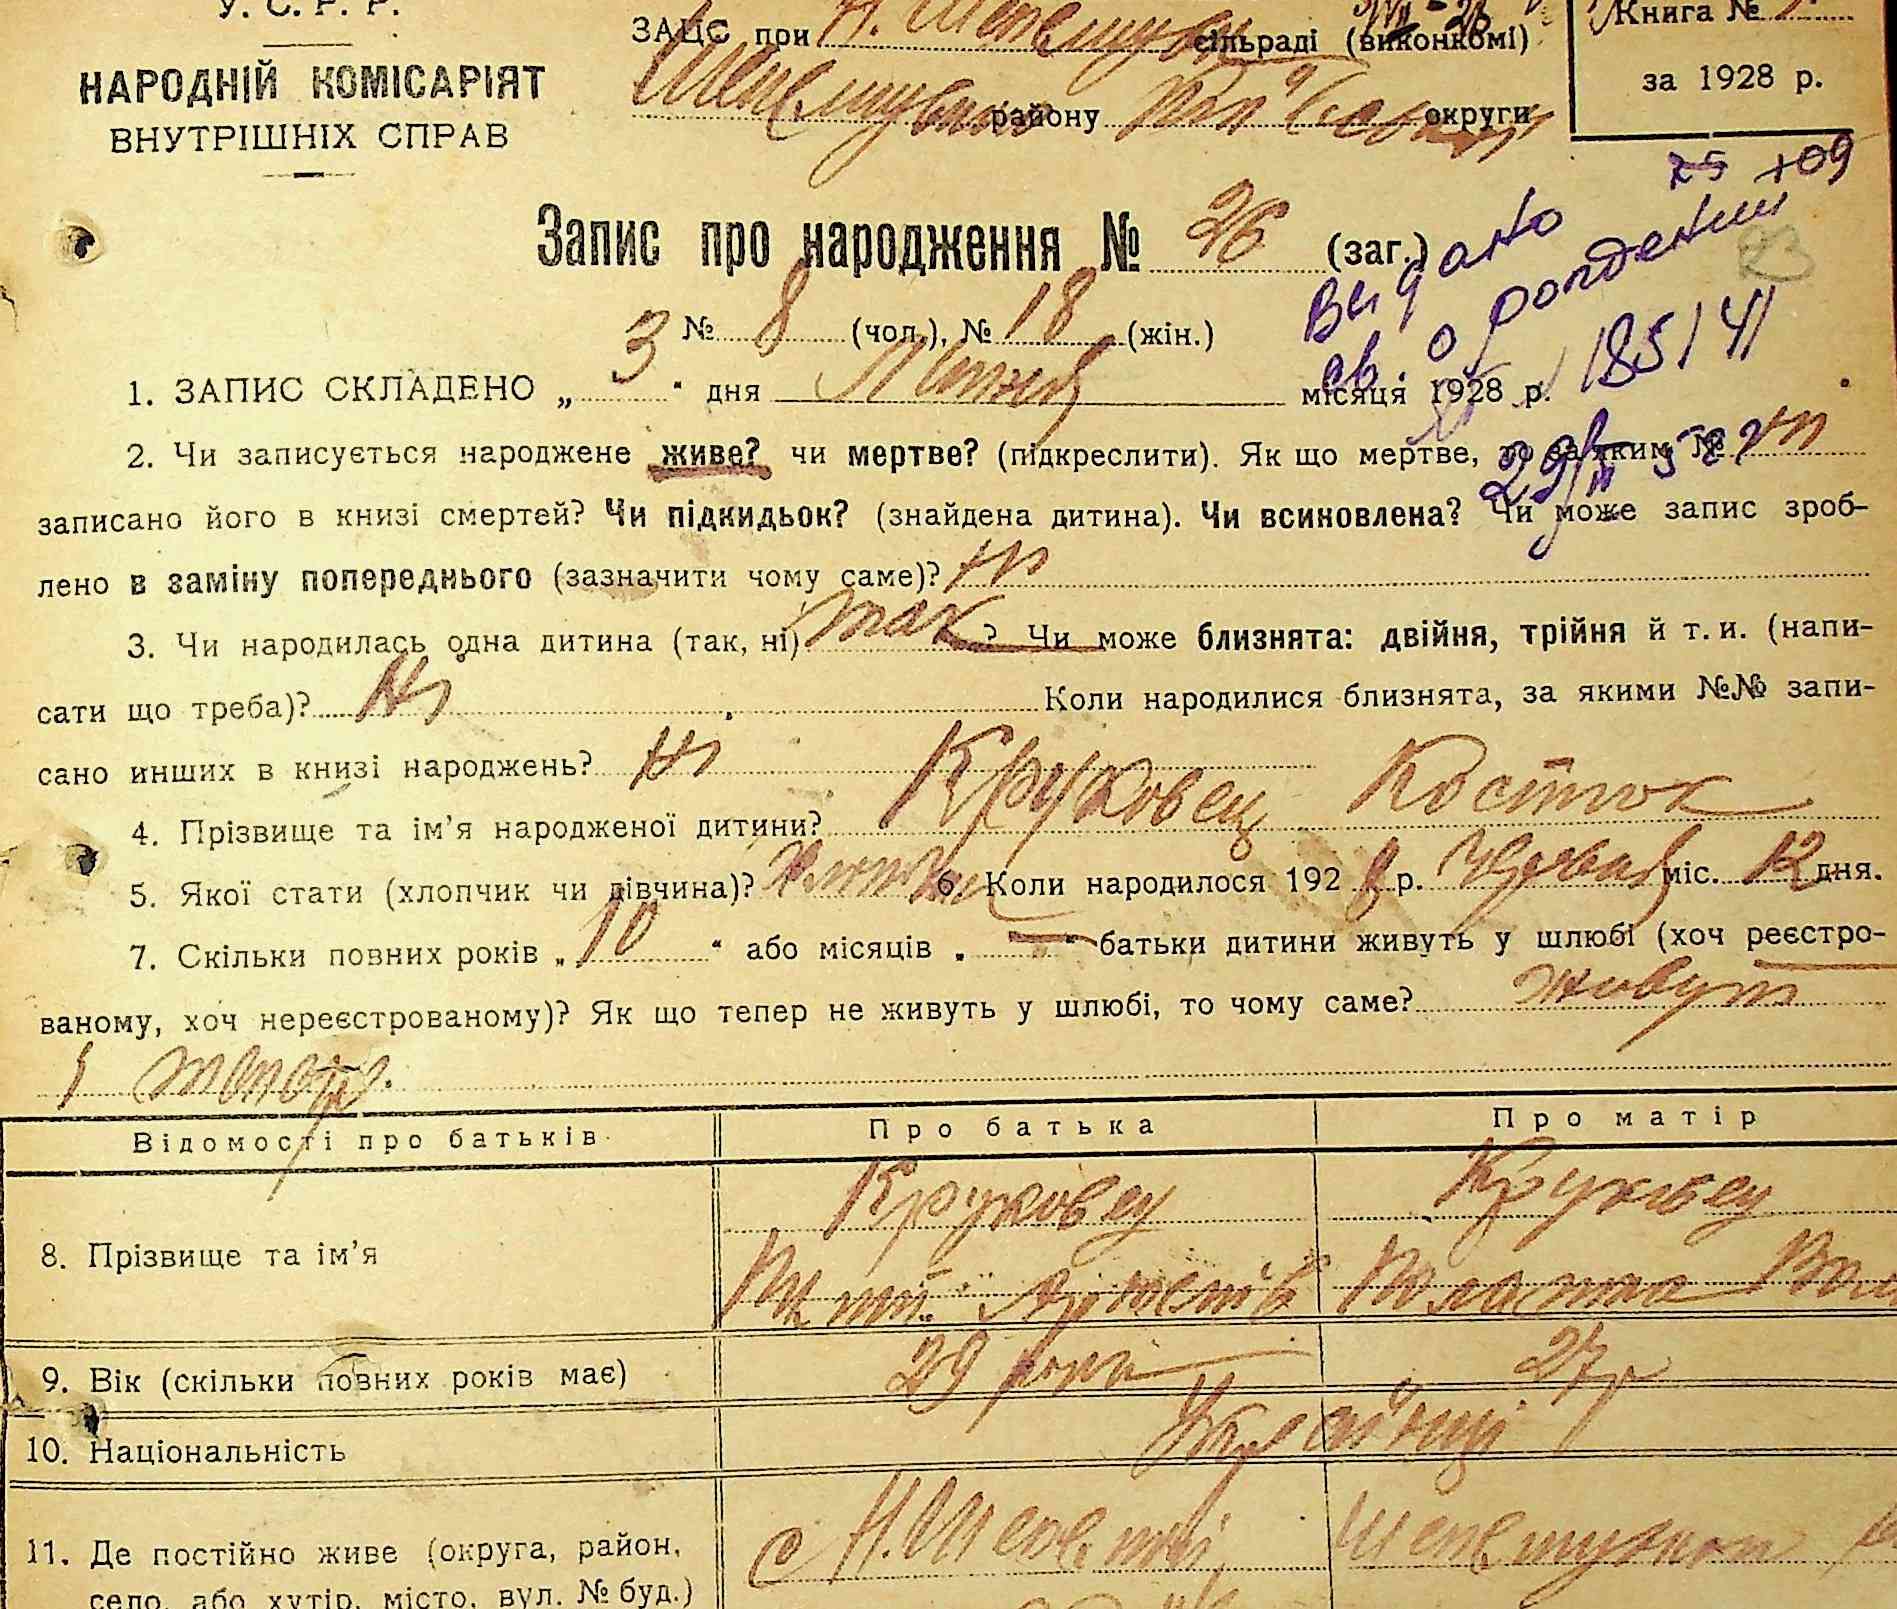 У. С. Р. Р.
НАРОДНІЙ КОМІСАРІЯТ
ВНУТРІШНІХ СПРАВ
ЗАЦС при Н. сільраді (виконкомі)
району округи
Книга №
за 1928 р.
Запис про народження № 26 (заг.)
25 +09
Видано
св. о рождении
185141
23
№ 8 (чол.), № 18 (жін.)
1. ЗАПИС СКЛАДЕНО „ 3 “ дня Липня місяця 1928 р.
2. Чи записується народжене живе? чи мертве? (підкреслити). Як що мертве, то за яким № ні
записано його в книзі смертей? Чи підкидьок? (знайдена дитина). Чи всиновлена? Чи може запис зроб-
лено в заміну попереднього (зазначити чому саме)? ні
3. Чи народилась одна дитина (так, ні) так ? Чи може близнята: двійня, трійня й т. и. (напи-
сати що треба)? Ні Коли народилися близнята, за якими №№ запи-
сано инших в книзі народжень? Ні
4. Прізвище та ім’я народженої дитини? Круковец Костюк
5. Якої стати (хлопчик чи дівчина)? Хлопчик 6. Коли народилося 1928 р. Червня міс. 12 дня.
7. Скільки повних років „ 10 “ або місяців „ — “ батьки дитини живуть у шлюбі (хоч реєстро-
ваному, хоч нереєстрованому)? Як що тепер не живуть у шлюбі, то чому саме? живут
і тепер.
Відомості про батьків Про батька Про матір
8. Прізвище та ім’я Круковец Круковец
9. Вік (скільки повних років має) 29 роки 27 р
10. Національність Українці
11. Де постійно живе (округа, район, с Н.
село, або хутір, місто, вул. № буд.)